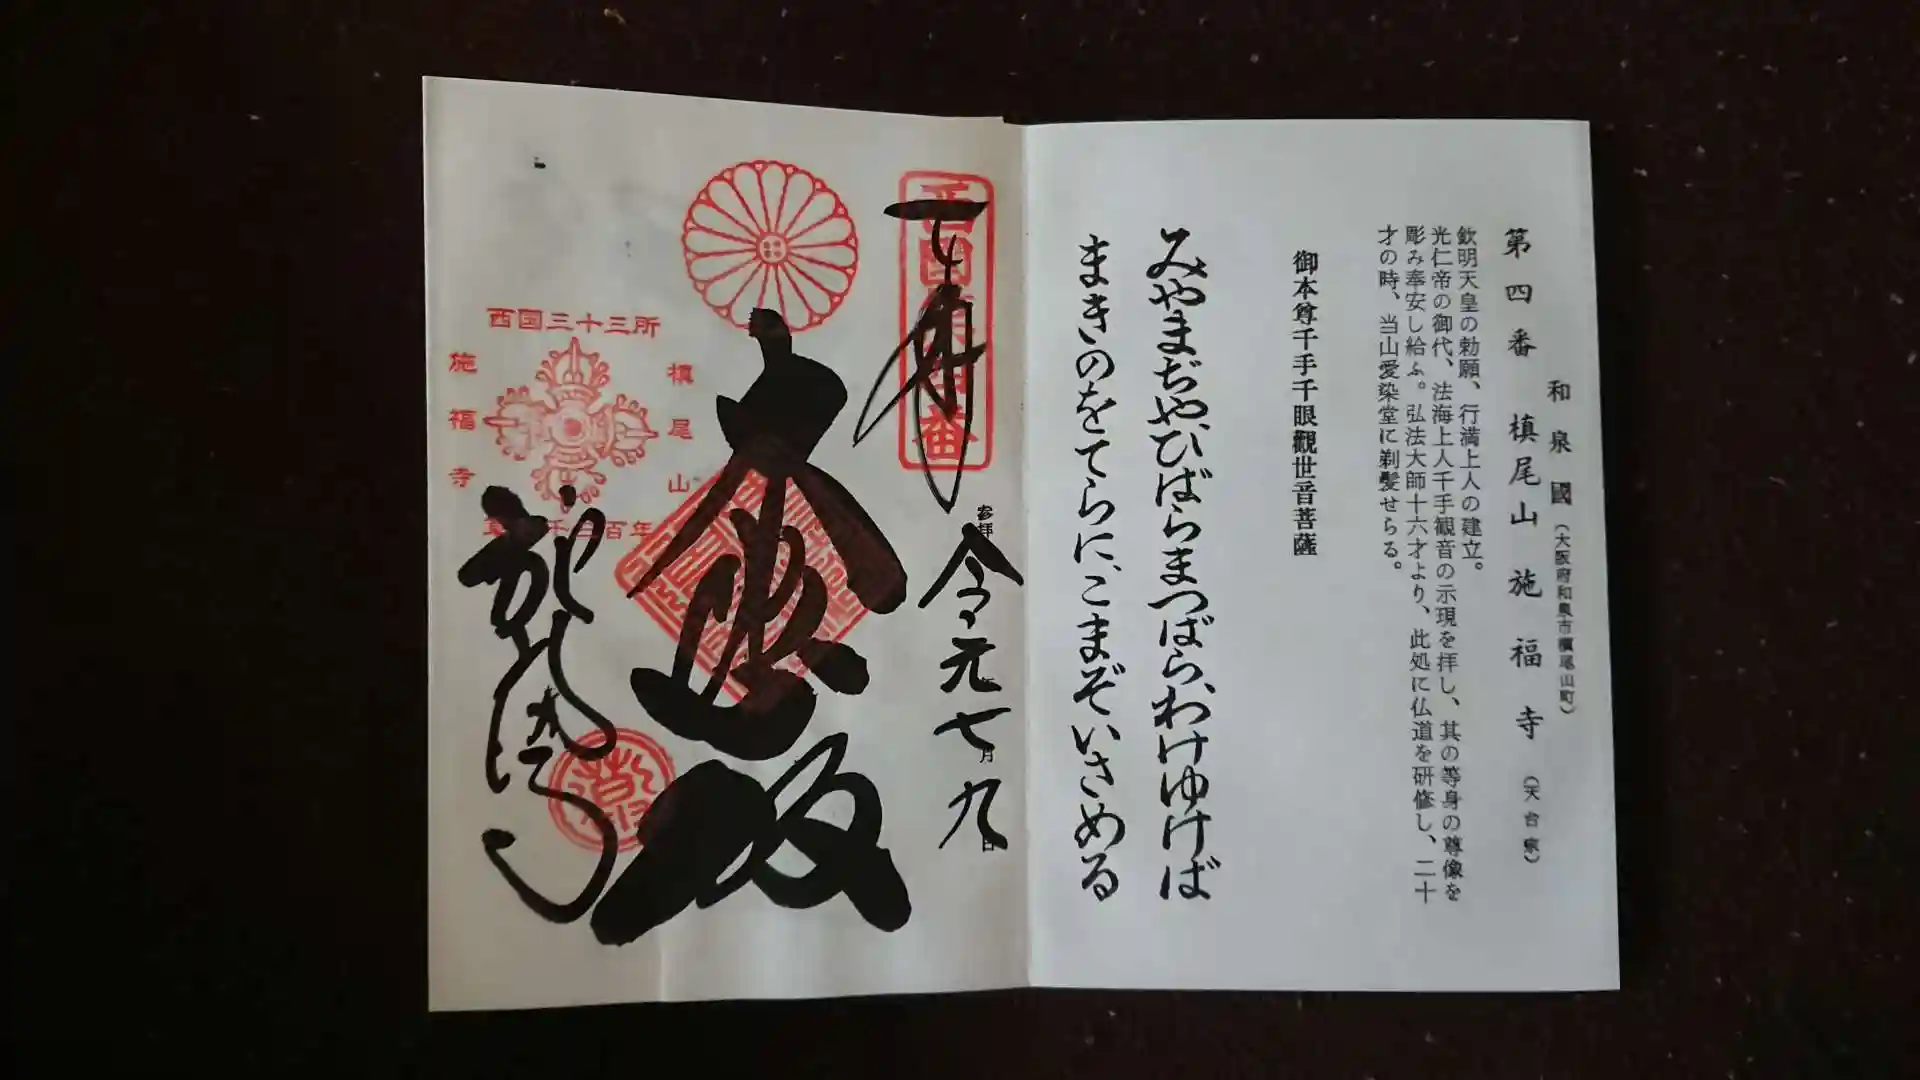 和泉國(大阪府和泉市槇尾山町)
第四番 槇尾山 施福寺 (天台宗)
欽明天皇の勅願、行満上人の建立。
光仁帝の御代、法海上人千手観音の示現を拝し、其の等身の尊像を
彫み奉安し給ふ。弘法大師十六才より、此処に仏道を研修し、二十
才の時、当山愛染堂に剃髪せらる。
御本尊千手千眼觀世音菩薩
みやまぢや、ひばらまつばら、わけゆけば
まきのをてらに、こまぞいさめる
西国第四番
奉拝
令元七月九日
西国三十三所
槇尾山
施福寺